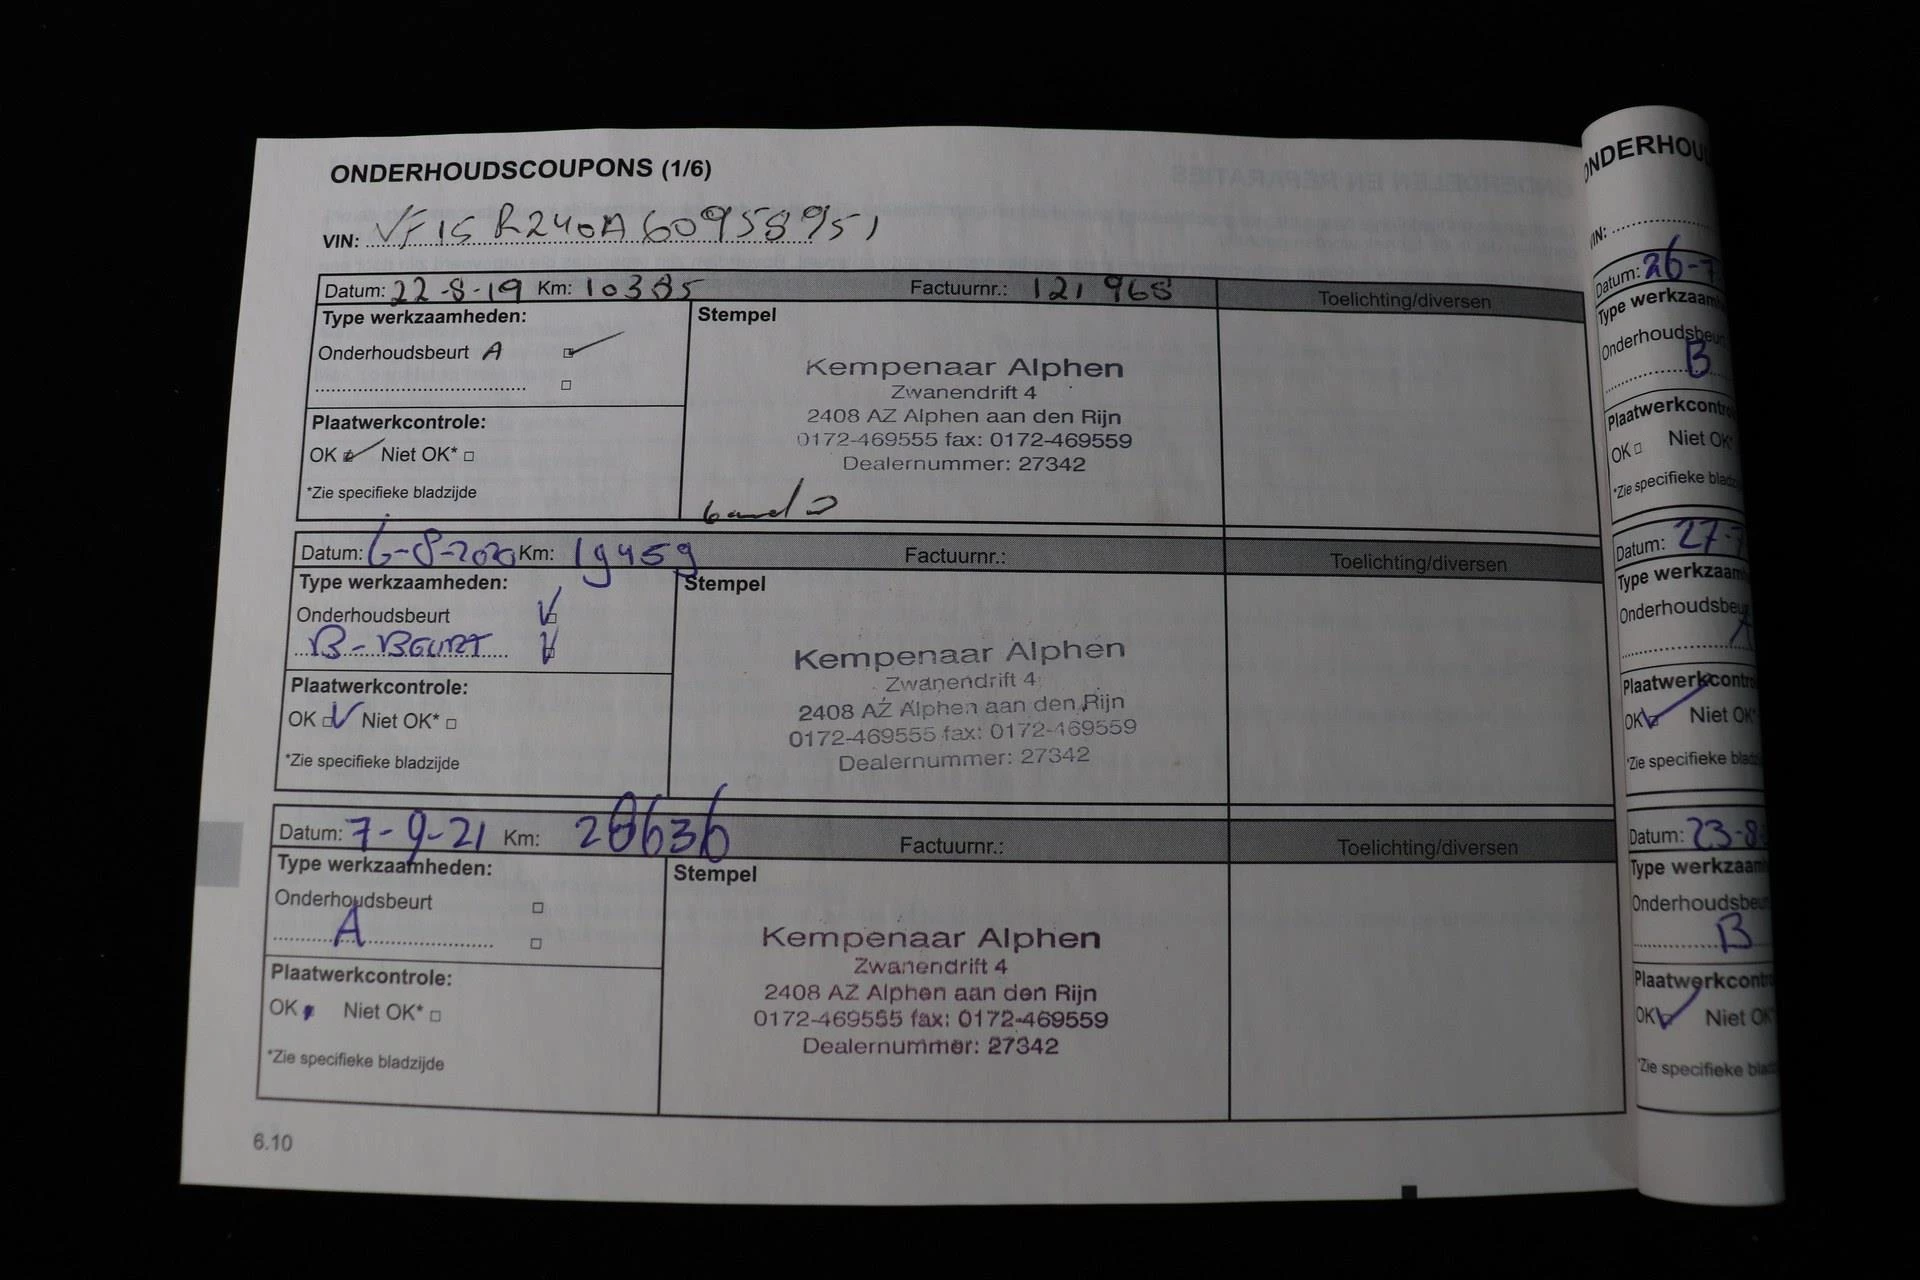 ONDERHOUDSCOUPONS (1/6)
VIN: VF15R240A60958951
Datum: 22-8-19 Km: 10385 Factuurnr.: 121968 Toelichting/diversen
Type werkzaamheden:
Onderhoudsbeurt A
Plaatwerkcontrole:
OK Niet OK*
*Zie specifieke bladzijde
Stempel
Kempenaar Alphen
Zwanendrift 4
2408 AZ Alphen aan den Rijn
0172-469555 fax: 0172-469559
Dealernummer: 27342
Datum: 6-8-2020 Km: 19459 Factuurnr.: Toelichting/diversen
Type werkzaamheden:
Onderhoudsbeurt
B-BEURT
Plaatwerkcontrole:
OK Niet OK*
*Zie specifieke bladzijde
Stempel
Kempenaar Alphen
Zwanendrift 4
2408 AZ Alphen aan den Rijn
0172-469555 fax: 0172-469559
Dealernummer: 27342
Datum: 7-9-21 Km: 28636 Factuurnr.: Toelichting/diversen
Type werkzaamheden:
Onderhoudsbeurt
A
Plaatwerkcontrole:
OK Niet OK*
*Zie specifieke bladzijde
Stempel
Kempenaar Alphen
Zwanendrift 4
2408 AZ Alphen aan den Rijn
0172-469555 fax: 0172-469559
Dealernummer: 27342
6.10
ONDERHOU
VIN:
Datum: 26-7
Type werkzaam
Onderhoudsbeur
B
Plaatwerkcontro
OK Niet OK*
*Zie specifieke bladz
Datum: 27-7
Type werkzaam
Onderhoudsbeu
A
Plaatwerkcontro
OK Niet OK*
*Zie specifieke blad
Datum: 23-8
Type werkzaam
Onderhoudsbeu
B
Plaatwerkcontro
OK Niet OK
*Zie specifieke blad